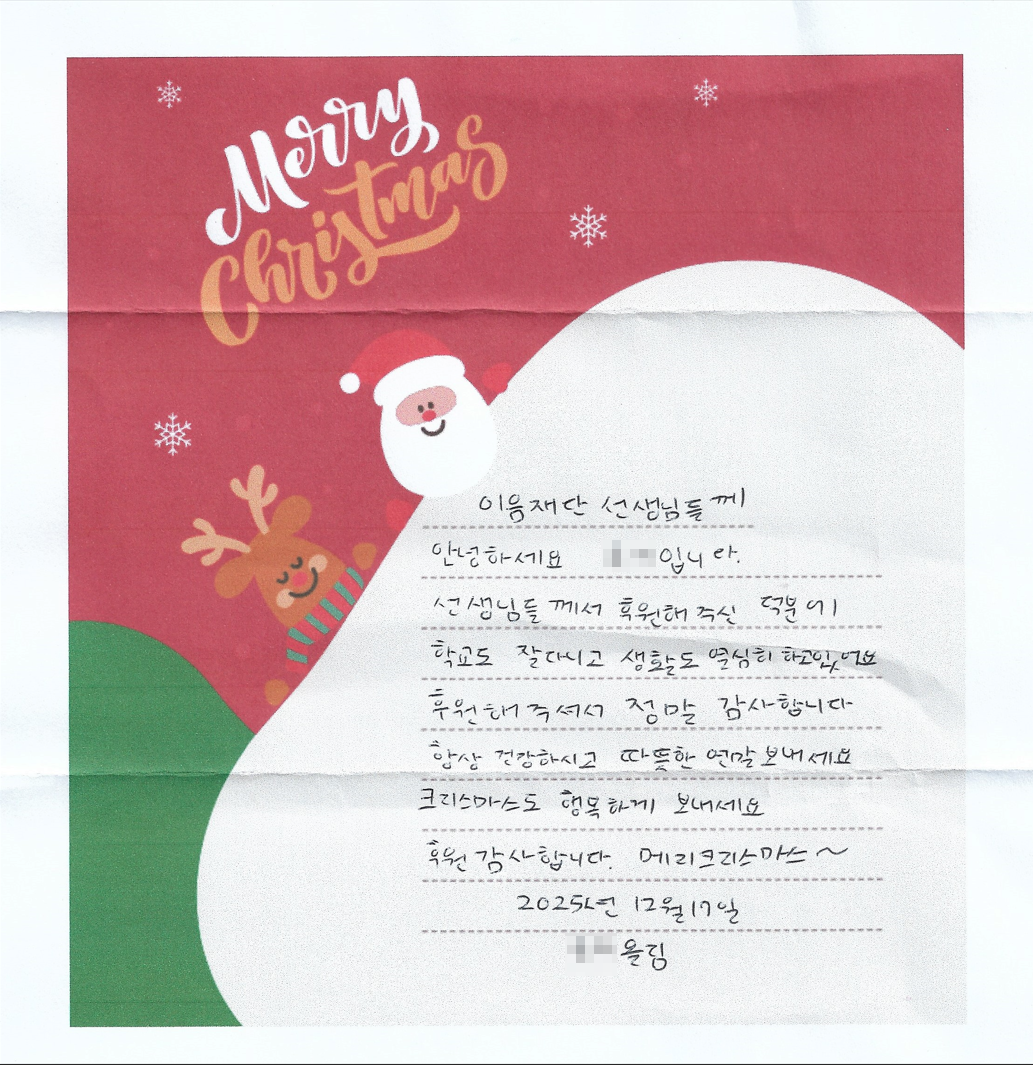 Merry
Christmas
이음재단 선생님들께
안녕하세요 입니다.
선생님들께서 후원해주신 덕분에
학교도 잘다니고 생활도 열심히 하고있어요
후원해주셔서 정말 감사합니다
항상 건강하시고 따뜻한 연말보내세요
크리스마스도 행복하게 보내세요
후원감사합니다. 메리크리스마스~
2025년 12월17일
올림